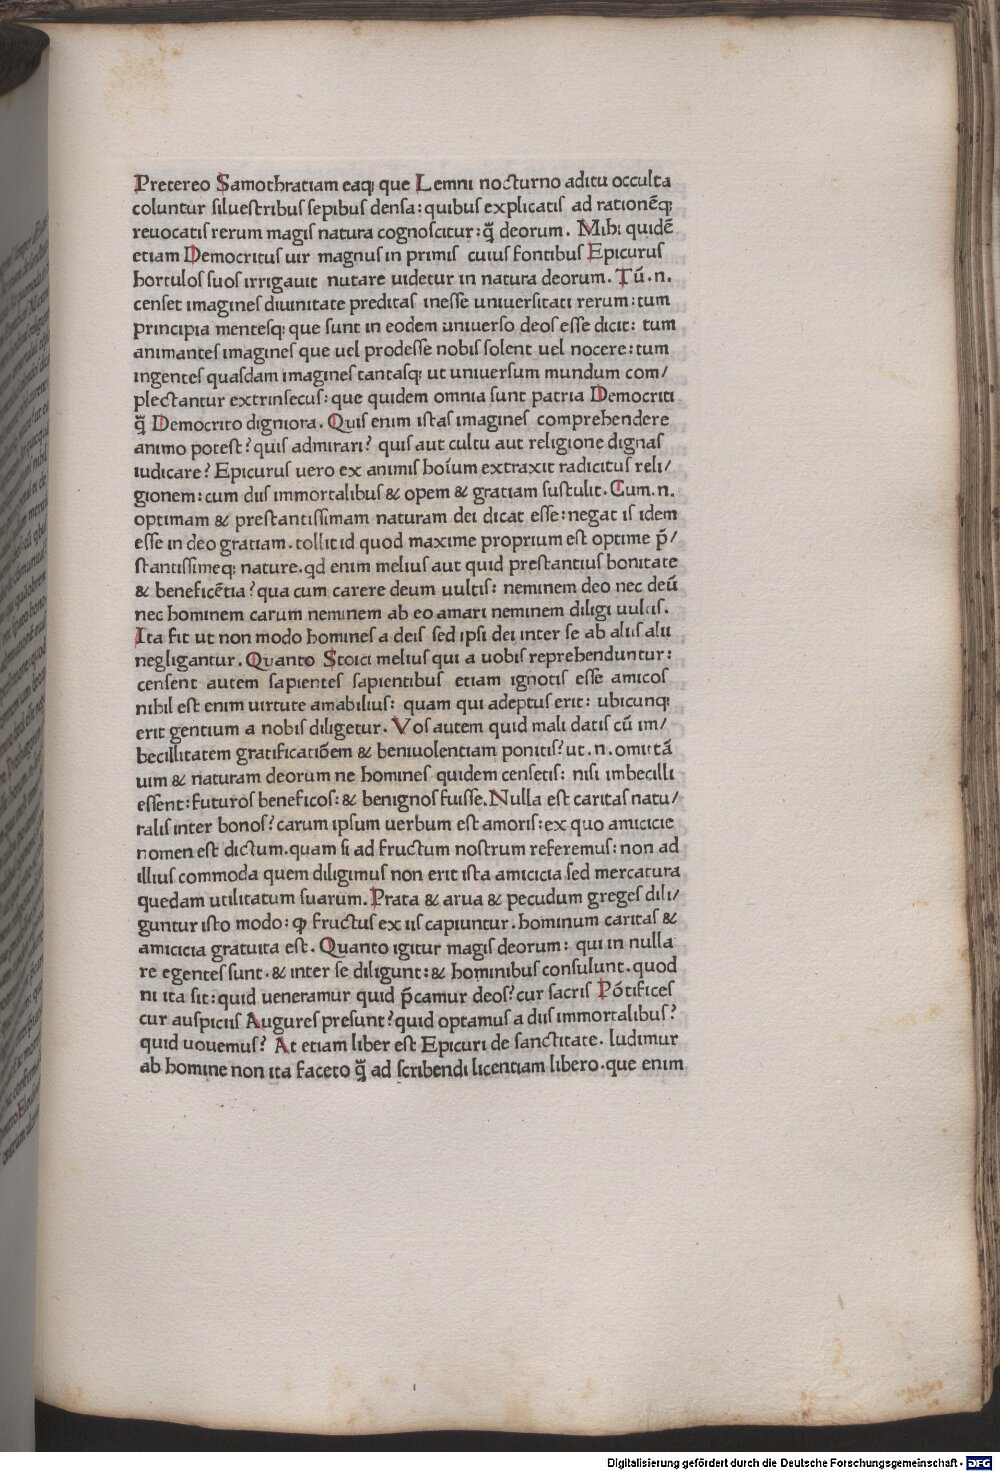 Pretereo Samothratiam eaq; que Lemni nocturno aditu occulta
coluntur siluestribus sepibus densa: quibus explicatis ad rationēq;
reuocatis rerum magis natura cognoscitur: q̃ deorum. Mihi quidē
etiam Democritus uir magnus in primis cuius fontibus Epicurus
hortulos suos irrigauit nutare uidetur in natura deorum. Tū.n.
censet imagines diuinitate preditas inesse uniuersitati rerum: tum
principia mentesq; que sunt in eodem uniuerso deos esse dicit: tum
animantes imagines que uel prodesse nobis solent uel nocere: tum
ingentes quasdam imagines tantasq; ut uniuersum mundum com/
plectantur extrinsecus: que quidem omnia sunt patria Democriti
q̃ Democrito digniora. Quis enim istas imagines comprehendere
animo potest? quis admirari? quis aut cultu aut religione dignas
iudicare? Epicurus uero ex animis hoīum extraxit radicitus reli/
gionem: cum diis immortalibus & opem & gratiam sustulit. Cum.n.
optimam & prestantissimam naturam dei dicat esse: negat is idem
esse in deo gratiam. tollit id quod maxime proprium est optime p̃/
stantissimeq; nature. qd enim melius aut quid prestantius bonitate
& beneficētia? qua cum carere deum uultis: neminem deo nec deū
nec hominem carum neminem ab eo amari neminem diligi uultis.
Ita fit ut non modo homines a deis sed ipsi dei inter se ab aliis alii
negligantur. Quanto Stoici melius qui a uobis reprehenduntur:
censent autem sapientes sapientibus etiam ignotis esse amicos
nihil est enim uirtute amabilius: quam qui adeptus erit: ubicunq;
erit gentium a nobis diligetur. Vos autem quid mali datis cū im/
becillitatem gratificatiōem & beniuolentiam ponitis? ut.n.omittā
uim & naturam deorum ne homines quidem censetis: nisi imbecilli
essent: futuros beneficos: & benignos fuisse. Nulla est caritas natu/
ralis inter bonos? carum ipsum uerbum est amoris: ex quo amicicie
nomen est dictum. quam si ad fructum nostrum referemus: non ad
illius commoda quem diligimus non erit ista amicicia sed mercatura
quedam utilitatum suarum. Prata & arua & pecudum greges dili/
guntur isto modo: ꝙ fructus ex iis capiuntur. hominum caritas &
amicicia gratuita est. Quanto igitur magis deorum: qui in nulla
re egentes sunt. & inter se diligunt: & hominibus consulunt. quod
ni ita sit: quid ueneramur quid p̃camur deos? cur sacris Pōtifices
cur auspiciis Augures presunt? quid optamus a diis immortalibus?
quid uouemus? At etiam liber est Epicuri de sanctitate. ludimur
ab homine non ita faceto q̃ ad scribendi licentiam libero. que enim
Digitalisierung gefördert durch die Deutsche Forschungsgemeinschaft - DFG